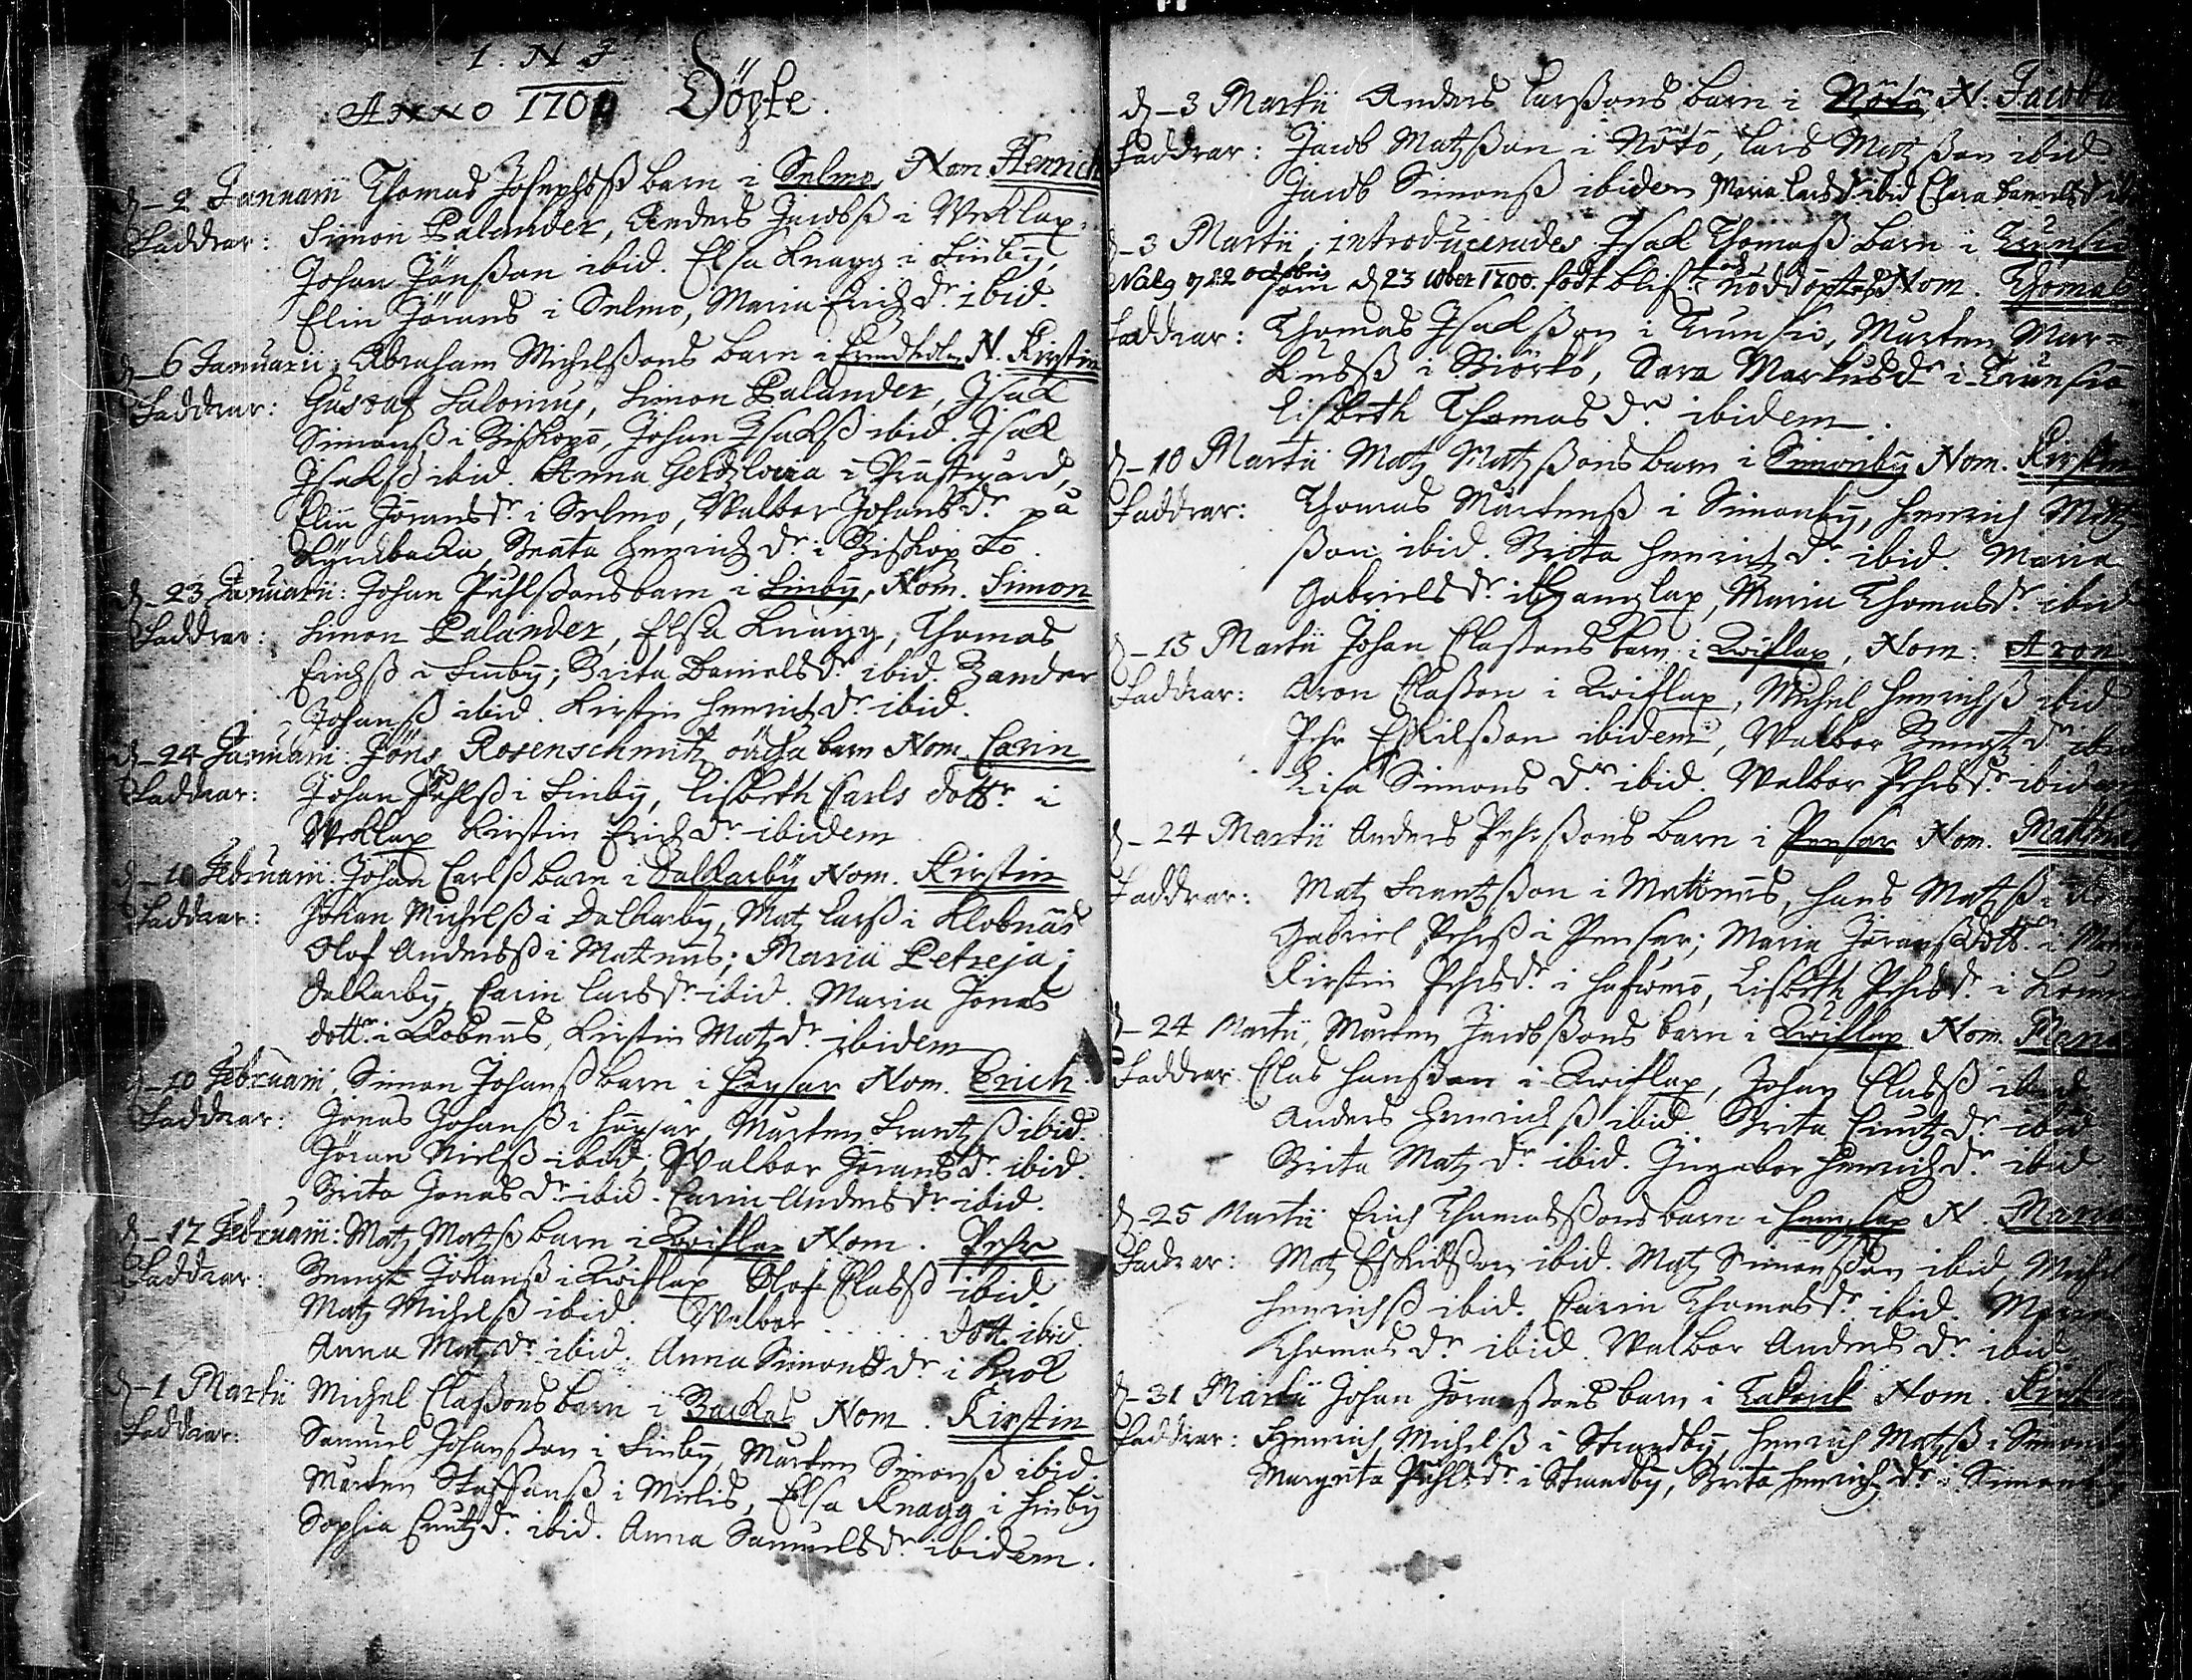 I. N. J.
Anno 1701 Döpte.
d. 2 Januarii Thomas Josephsß barn i Selmo, Nom Henrich
Faddrar: Simon Palander, Anders Jacobsß i Werklax
Johan Jönßon ibid. Elsa Knagg i Finby,
Elin Jörans i Selmo, Maria Erichzdr ibid.
d. 6 Januarii, Abraham Michelßons barn i N. Kirstin
Faddrar: Gustaf Salonius, Simon Palander, Isac
Simonß i Biskopö, Johan Isacsß ibid. Isac
Isacsß ibid. Anna i Prästgård,
Elin Jöransdr i Selmo, Walbor Johansdr på
Beata Henrichzdr i Biskopsö.
d. 23 Januarii: Johan Påhlßons barn i Finby, Nom. Simon
Faddrar: Simon Palander, Elsa Knagg, Thomas
Erichsß i Finby; Brita Danielsdr ibid. Zander
Johansß ibid. Kirstin Henrichzdr ibid.
d. 24 Januarii: Jöns Rosenschmitz oächta barn Nom. Carin
Faddrar: Johan Påhlsß i Finby, Lisbeth Carls dottr i
Werklax Kirstin Erichzdr ibidem
d. 10 Februarii: Johan Carlsß barn i Dalkarby Nom. Kirstin
Faddrar: Johan Michelsß i Dalkarby, Matz Larsß i Klobnäs
Olof Andersß i Matnäs; Maria Petreja i
Dalkarby, Carin Larsdr ibid. Maria Jönas
dottr i Klobnäs, Kirstin Matzdr ibidem
d. 10 Februarii, Simon Johansß barn i Högsar Nom. Erich
Faddrar: Jonas Johansß i Högsar, Mårten Frantzß ibid.
Jöran Nielsß ibid; Walbor Jöransdr ibid.
Brita Jonasdr ibid. Carin Andersdr ibid.
d. 17 Februarii: Matz Matzß barn i Kwiflax Nom. Pehr
Faddrar: Bengt Johansß i Kwiflax Olof Clasß ibid.
Matz Michelsß ibid. Walbor . . . . . dott. ibid.
Anna Matzdr ibid. Anna Simonsdr i Krok
d. 1 Martii Michel Claßons barn i Backas Nom. Kirstin
Faddrar: Samuel Johanßon i Finby, Mårten Simonsß ibid.
Mårten Staffansß i Mielis, Elsa Knagg i Finby
Sophia Cnutzdr ibid. Anna Samuelsdr ibidem.
d. 3 Martii Anders Larßons barn i Nötö, N: Jacob
Faddrar: Jacob Matzßon i Nötö, Lars Matzßon ibid
Jacob Simonsß ibidem Maria Larsdr ibid Clara Danielsdr
d. 3 Martii, introducerades Isac Thomasß barn i Trunsö
som d. 23 1700. födt blifwit och nöddöptes Nom. Thomas
Faddrar: Thomas Isacsßon i Trunsö, Mårten Mar-
kusß i Björkö, Sara Markusdr i Trunsö
Lisbeth Thomasdr ibidem.
d. 10 Martii Matz Matzßons barn i Simonby Nom. Kirstin
Faddrar: Thomas Mårtensß i Simonby, Henrich Matz
ßon ibid. Brita Henrichzdr ibid. Maria
Gabrielsdr i Hanglax, Maria Thomasdr ibid
d. 15 Martii Johan Claßons barn i Kwiflax, Nom: Aron
Faddrar: Aron Claßon i Kwiflax, Michel Henrichsß ibid
Pehr Eskilßon ibidem, Walbor Bengtzdr
Lisa Simonsdr ibid. Walbor Pehrsdr ibidem
d. 24 Martii Anders Pehrßons barn i Pensar Nom.
Faddrar: Matz Frantzßon i Mattnäs, Hans Matzß
Gabriel Pehrsß i Pensar; Maria Jöransdott. i
Kirstin Pehrsdr i Hafwerö, Lisbeth Pehrsdr i
d. 24 Martii, Mårten Jacobßons barn i Kwiflax Nom.
Faddrar Clas Hanßon i Kwiflax, Johan Clasß ibid.
Anders Henrichsß ibid. Brita Cnutzdr ibid
Brita Matzdr ibid. Ingebor Henrichzdr ibid
d. 25 Martii Erich Thomasßons barn i Hanglax N. Maria
Fadrar: Matz Eskilßon ibid. Matz Simonßon ibid, Michel
Henrichsß ibid. Carin Thomasdr ibid. Maria
Thomasdr ibid. Walbor Andersdr ibid
d. 31 Martii Johan Jöranßons barn i Nom. Kirstin
Faddrar: Henrich Michelsß i Strandby, Henrich Matzß i Simonby
Margreta Påhlsdr i Strandby, Brita Henrichzdr i Simonby